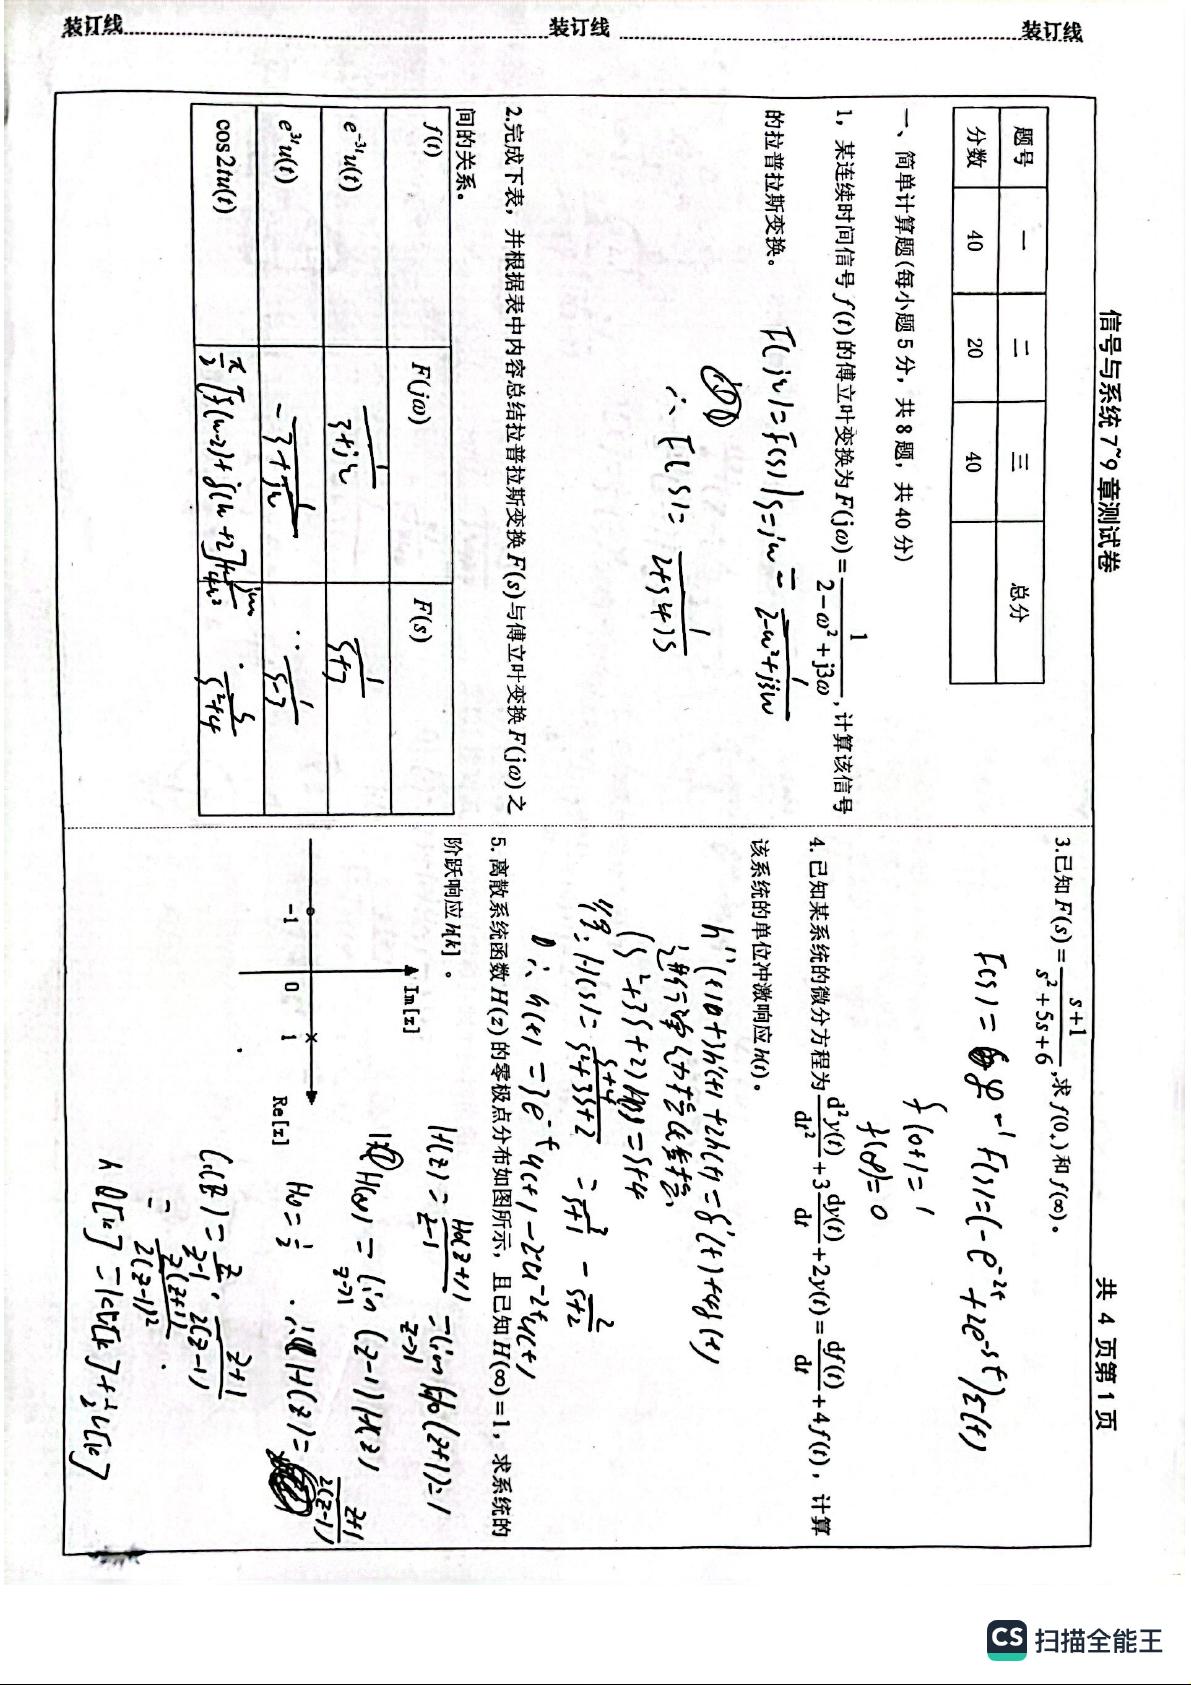 装订线 装订线 装订线
信号与系统 7~9 章测试卷
共 4 页第 1 页
题号 一 二 三 总分
分数 40 20 40
一、简单计算题(每小题 5 分，共 8 题，共 40 分)
1，某连续时间信号 f(t) 的傅立叶变换为 F(jω)=1/(2-ω²+j3ω),计算该信号
的拉普拉斯变换。
F(jω)=F(s)|s=jω=1/(2-ω²+j3ω)
∴ F(s)=1/(2+s²+3s)
2.完成下表，并根据表中内容总结拉普拉斯变换 F(s)与傅立叶变换 F(jω)之
间的关系。
f(t) F(jω) F(s)
e⁻³ᵗu(t) 1/(3+jω) 1/(s+3)
e³ᵗu(t) 1/(s-3)
cos2tu(t) π/2[δ(ω-2)+δ(ω+2)]+jω/(4-ω²) s/(s²+4)
3.已知 F(s)=(s+1)/(s²+5s+6),求 f(0₊)和 f(∞)。
F(s)=ℒ⁻¹F(s)=(-e⁻²ᵗ+2e⁻³ᵗ)ε(t)
f(0+)=1
f(∞)=0
4.已知某系统的微分方程为 d²y(t)/dt²+3dy(t)/dt+2y(t)=df(t)/dt+4f(t)，计算
该系统的单位冲激响应 h(t)。
h''(t)+3h'(t)+2h(t)=δ'(t)+4δ(t)
(s²+3s+2)H(s)=s+4
得:H(s)=(s+4)/(s²+3s+2)=3/(s+1)-2/(s+2)
∴h(t)=3e⁻ᵗu(t)-2e⁻²ᵗu(t)
5.离散系统函数 H(z)的零极点分布如图所示，且已知 H(∞)=1，求系统的
阶跃响应 h[k]。
Im[z]
-1 0 1
Re[z]
H(z)=H₀(z+1)/(z-1) =lim z→1 H₀(z+1)=1
H(∞)=lim z→1 (z-1)H(z)
H₀=1/2 ∴H(z)=(z+1)/(2(z-1))
G(z)=z/(z-1)·(z+1)/(2(z-1))
=z(z+1)/(2(z-1)²)
h[k]=ku[k]+1/2u[k]
CS 扫描全能王